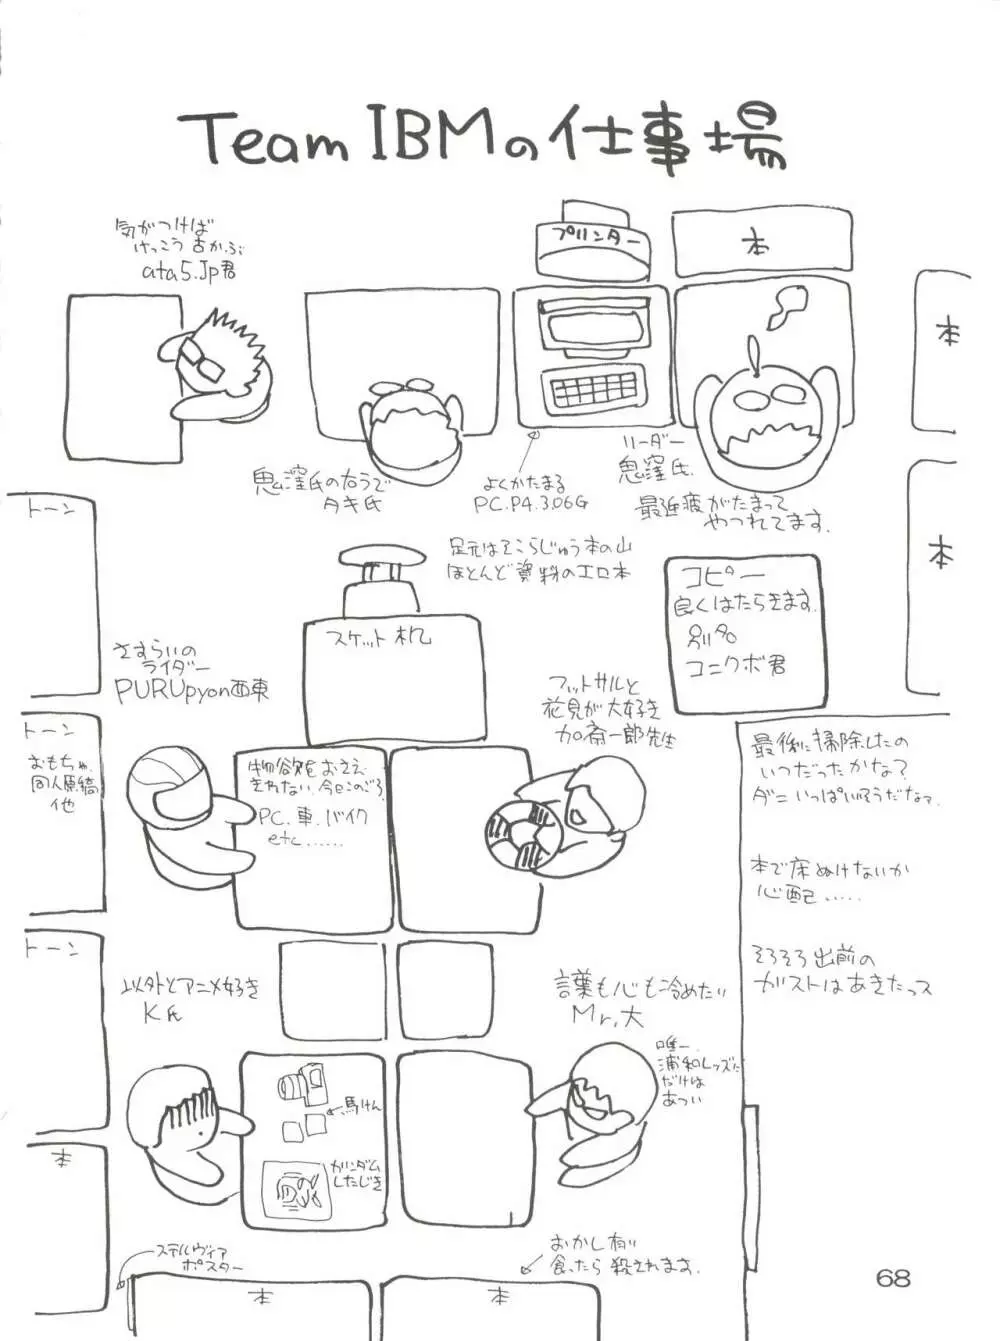 Team IBMの仕事場
気がつけば
けっこう古かぶ
ata5.Jp君
プリンター
本
本
鬼窪氏の右うで
タキ氏
よくかたまる
PC.P4.3.06G
リーダー
鬼窪氏.
最近疲がたまって
やつれてます.
トーン
足元はそこらじゅう本の山
ほとんど資料のエロ本
本
コピー
良くはたらきます.
別名
コニクボ君
スケット机
さすらいの
ライダー
PURUpyon西東
フットサルと
花見が大好き
加斎一郎先生
トーン
おもちゃ.
同人原稿
他
物欲をおさえ
きれない.今日このごろ.
PC.車.バイク
etc......
最後に掃除したの
いつだったかな?
ダニいっぱいいそうだなァ
本で床ぬけないか
心配.....
そろそろ出前の
ガストはあきたっス
トーン
以外とアニメ好き
K氏
言葉も心も冷めたい
Mr.大
唯一
浦和レッズに
だけは
あつい
馬けん
ガンダム
したじき
本
ステルヴィア
ポスター
おかし有り
食ったら殺されます.
本
本
68